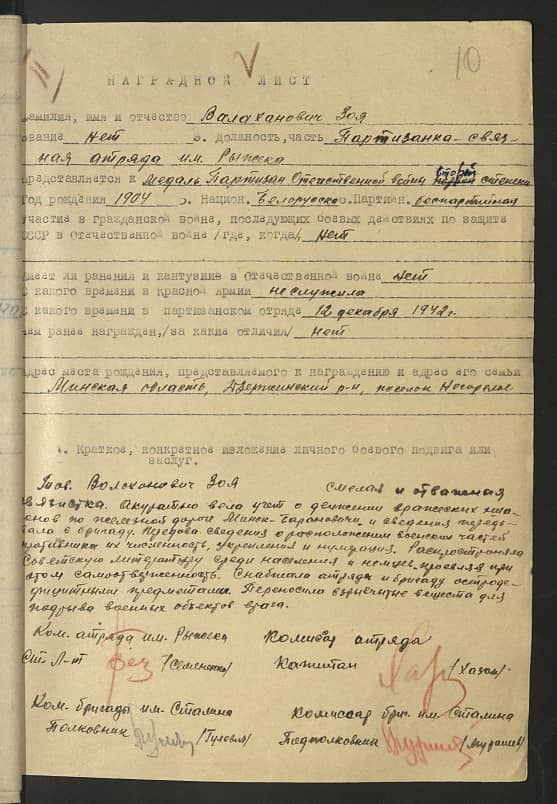 10
НАГРАДНОЙ ЛИСТ
амилия, имя и отчество Валаханович Зоя
ование нет 3. Должность, часть Партизанка-связ-
ная атряда им. Рыжека
редставляется к медаль Партизан Отечественной войны второй степени
Год рождения 1904 5. Национ. Белорусска о.Партиен. беспартийная
участие в гражданской войне, последующих боевых действиях по защите
СССР в Отечественной войне /где, когда/ нет
меет ли ранения и кантузиие в Отечественной войне нет
С какого времени в Красной Армии неслужила
С какого времени в партизанском отряде 12 декабря 1942г.
ем ранее награжден,/за какие отличия/ нет
адрес места рождения, представляемого к награждению и адрес его семьи
Минская область, Дзержинский р-н, поселок Негорелое
1. Краткое, конкретное изложение личного боевого подвига или
заслуг.
Тов. Волоханович Зоя смелая и отважная
связистка. Акуратно вела учет о движении вражеских эшa-
онов по железной дороги Минск-Барановичи и сведения переда-
вала в бригаду. сведения о расположении воинских частей
противника их численность, укрепления и Распространяла
Советскую литературу среди населения и немцев проявляя при
этом самоотверженность. Снабжала атряды и бригаду остроде-
фицитными предметами. Переносила взрывчатые вещества для
подрыва военных объектов врага.
Ком. атряда им. Рыжека Комисар атряда
Ст Л-т /Семененко/ Капитан /Хазов/
Ком. бригады им. Сталина Комиссар бриг. им. Сталина
Полковник /Гулевич/ Подполковник /Мурашев/